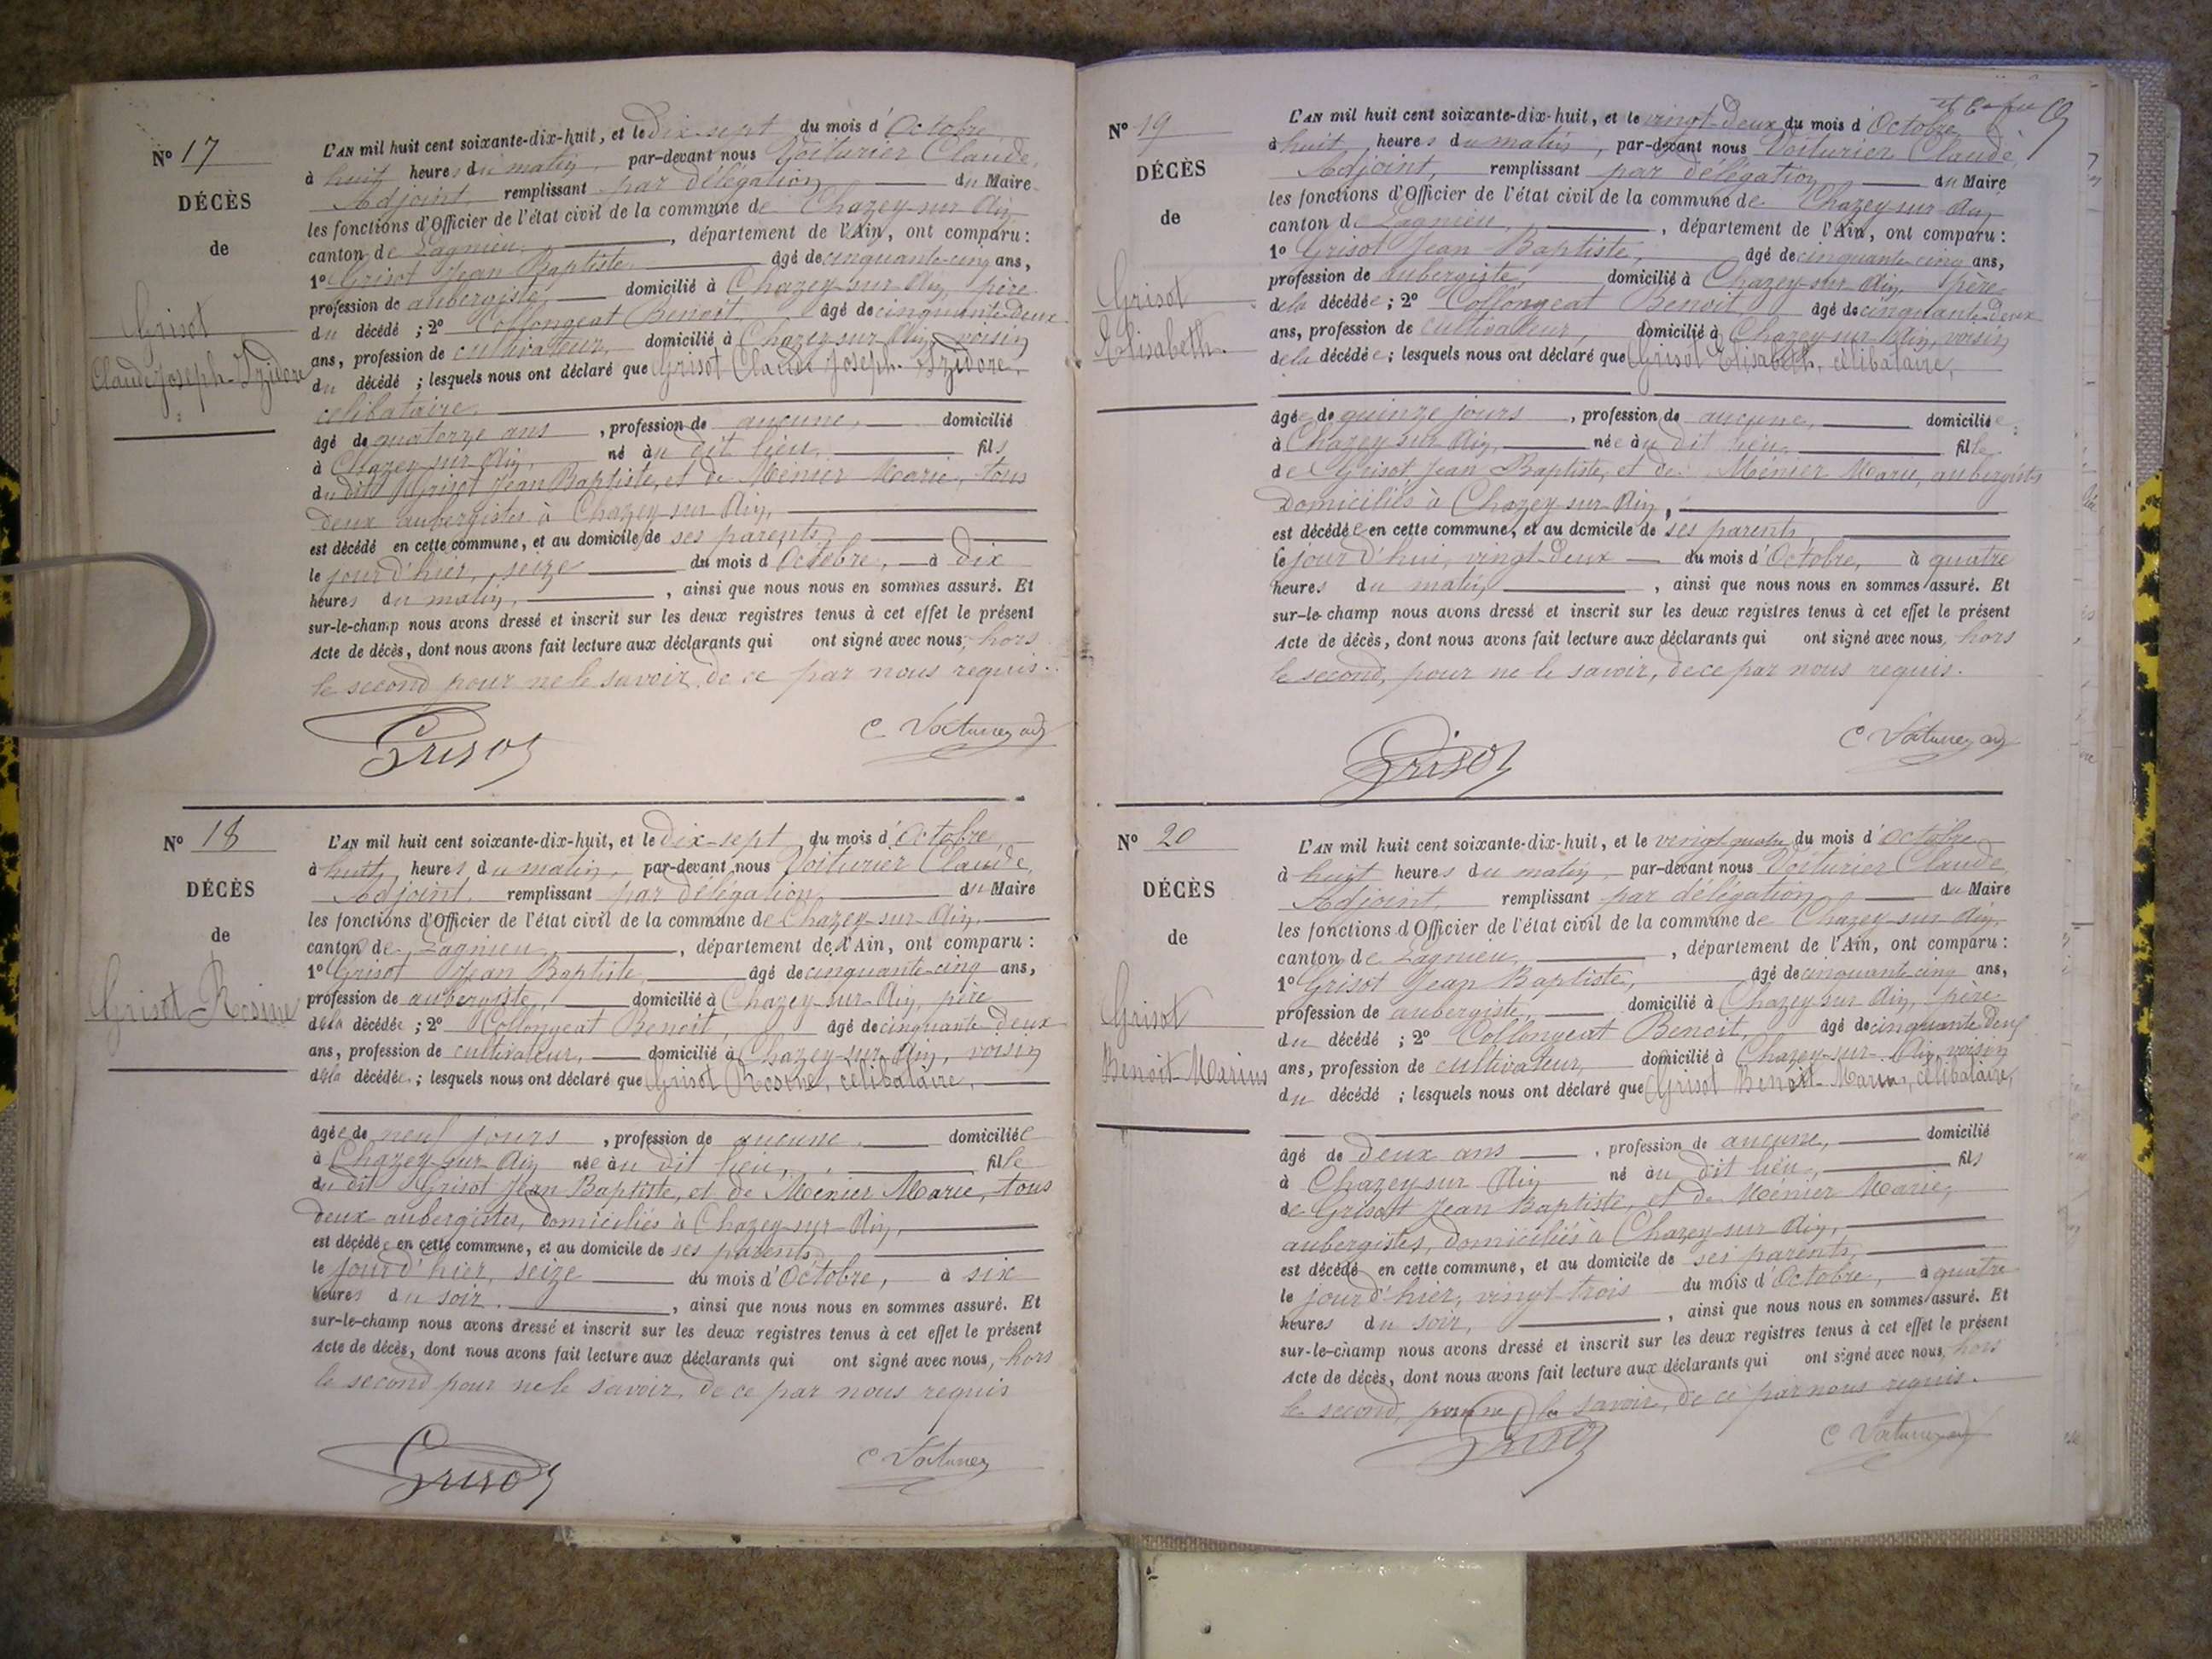 Nº 17
DÉCÈS
de
Grisot
Claude Joseph-Izidore
L'AN mil huit cent soixante-dix-huit, et le Dix-sept du mois d'Octobre
à huit heures du matin, par-devant nous Voiturier Claude,
Adjoint, remplissant par délégation du Maire
les fonctions d'Officier de l'état civil de la commune de Chazey-sur-Ain,
canton de Lagnieu, département de l'Ain, ont comparu :
1º Grisot Jean Baptiste, âgé de cinquante-cinq ans,
profession de aubergiste, domicilié à Chazey-sur-Ain, père
du décédé ; 2º Collongeat Benoit, âgé de cinquante-deux
ans, profession de cultivateur, domicilié à Chazey-sur-Ain, voisin
du décédé ; lesquels nous ont déclaré que Grisot Claude Joseph-Izidore,
celibataire,
âgé de quatorze ans, profession de aucune, domicilié
à Chazey-sur-Ain, né au dit lieu, fils
du dit Grisot Jean Baptiste, et de Ménier Marie, tous
deux aubergistes à Chazey-sur-Ain,
est décédé en cette commune, et au domicile de ses parents,
le jour d'hier, seize du mois d'Octobre, à dix
heures du matin, ainsi que nous nous en sommes assuré. Et
sur-le-champ nous avons dressé et inscrit sur les deux registres tenus à cet effet le présent
Acte de décès, dont nous avons fait lecture aux déclarants qui ont signé avec nous, hors
le second pour ne le savoir, de ce par nous requis.
Grisot C Voiturier adj
Nº 18
DÉCÈS
de
Grisot Rosine
L'AN mil huit cent soixante-dix-huit, et le Dix-sept du mois d'Octobre
à huit heures du matin, par-devant nous Voiturier Claude,
Adjoint, remplissant par délégation du Maire
les fonctions d'Officier de l'état civil de la commune de Chazey-sur-Ain,
canton de Lagnieu, département de l'Ain, ont comparu :
1º Grisot Jean Baptiste, âgé de cinquante-cinq ans,
profession de aubergiste, domicilié à Chazey-sur-Ain, père
de la décédée ; 2º Collongeat Benoit, âgé de cinquante-deux
ans, profession de cultivateur, domicilié à Chazey-sur-Ain, voisin
de la décédée ; lesquels nous ont déclaré que Grisot Rosine, célibataire,
âgée de neuf jours, profession de aucune, domiciliée
à Chazey-sur-Ain née au dit lieu, fille
du dit Grisot Jean Baptiste, et de Ménier Marie, tous
deux aubergistes, domiciliés à Chazey-sur-Ain,
est décédée en cette commune, et au domicile de ses parents,
le jour d'hier, seize du mois d'Octobre, à six
heures du soir, ainsi que nous nous en sommes assuré. Et
sur-le-champ nous avons dressé et inscrit sur les deux registres tenus à cet effet le présent
Acte de décès, dont nous avons fait lecture aux déclarants qui ont signé avec nous, hors
le second pour ne le savoir, de ce par nous requis
Grisot C Voiturier
Nº 19
DÉCÈS
de
Grisot
Elisabeth.
L'AN mil huit cent soixante-dix-huit, et le vingt-deux du mois d'Octobre
à huit heures du matin, par-devant nous Voiturier Claude
Adjoint, remplissant par délégation du Maire
les fonctions d'Officier de l'état civil de la commune de Chazey-sur-Ain,
canton de Lagnieu, département de l'Ain, ont comparu :
1º Grisot Jean Baptiste, âgé de cinquante-cinq ans,
profession de aubergiste, domicilié à Chazey-sur-Ain, père
de la décédée ; 2º Collongeat Benoit, âgé de cinquante-deux
ans, profession de cultivateur, domicilié à Chazey-sur-Ain, voisin
de la décédée ; lesquels nous ont déclaré que Grisot Elisabeth, célibataire,
âgée de quinze jours, profession de aucune, domiciliée
à Chazey-sur-Ain, née au dit lieu, fille
de Grisot Jean Baptiste, et de Ménier Marie, aubergistes
domiciliés à Chazey-sur-Ain,
est décédée en cette commune, et au domicile de ses parents
le jour d'hui, vingt-deux du mois d'Octobre, à quatre
heures du matin, ainsi que nous nous en sommes assuré. Et
sur-le-champ nous avons dressé et inscrit sur les deux registres tenus à cet effet le présent
Acte de décès, dont nous avons fait lecture aux déclarants qui ont signé avec nous, hors
le second, pour ne le savoir, de ce par nous requis.
Grisot C Voiturier adj
Nº 20
DÉCÈS
de
Grisot
Benoit-Marius
L'AN mil huit cent soixante-dix-huit, et le vingt quatre du mois d'Octobre
à huit heures du matin, par-devant nous Voiturier Claude,
Adjoint, remplissant par délégation du Maire
les fonctions d'Officier de l'état civil de la commune de Chazey-sur-Ain,
canton de Lagnieu, département de l'Ain, ont comparu :
1º Grisot Jean Baptiste, âgé de cinquante-cinq ans,
profession de aubergiste, domicilié à Chazey-sur-Ain, père
du décédé ; 2º Collongeat Benoit, âgé de cinquante deux
ans, profession de cultivateur, domicilié à Chazey-sur-Ain, voisin
du décédé ; lesquels nous ont déclaré que Grisot Benoit-Marius, célibataire,
âgé de deux ans, profession de aucune, domicilié
à Chazey-sur Ain né au dit lieu, fils
de Grisot Jean Baptiste, et de Ménier Marie,
aubergistes, domiciliés à Chazey-sur-Ain,
est décédé en cette commune, et au domicile de ses parents,
le jour d'hier, vingt-trois du mois d'Octobre, à quatre
heures du soir, ainsi que nous nous en sommes assuré. Et
sur-le-champ nous avons dressé et inscrit sur les deux registres tenus à cet effet le présent
Acte de décès, dont nous avons fait lecture aux déclarants qui ont signé avec nous, hors
le second, pour ne le savoir, de ce par nous requis.
Grisot C Voiturier adj